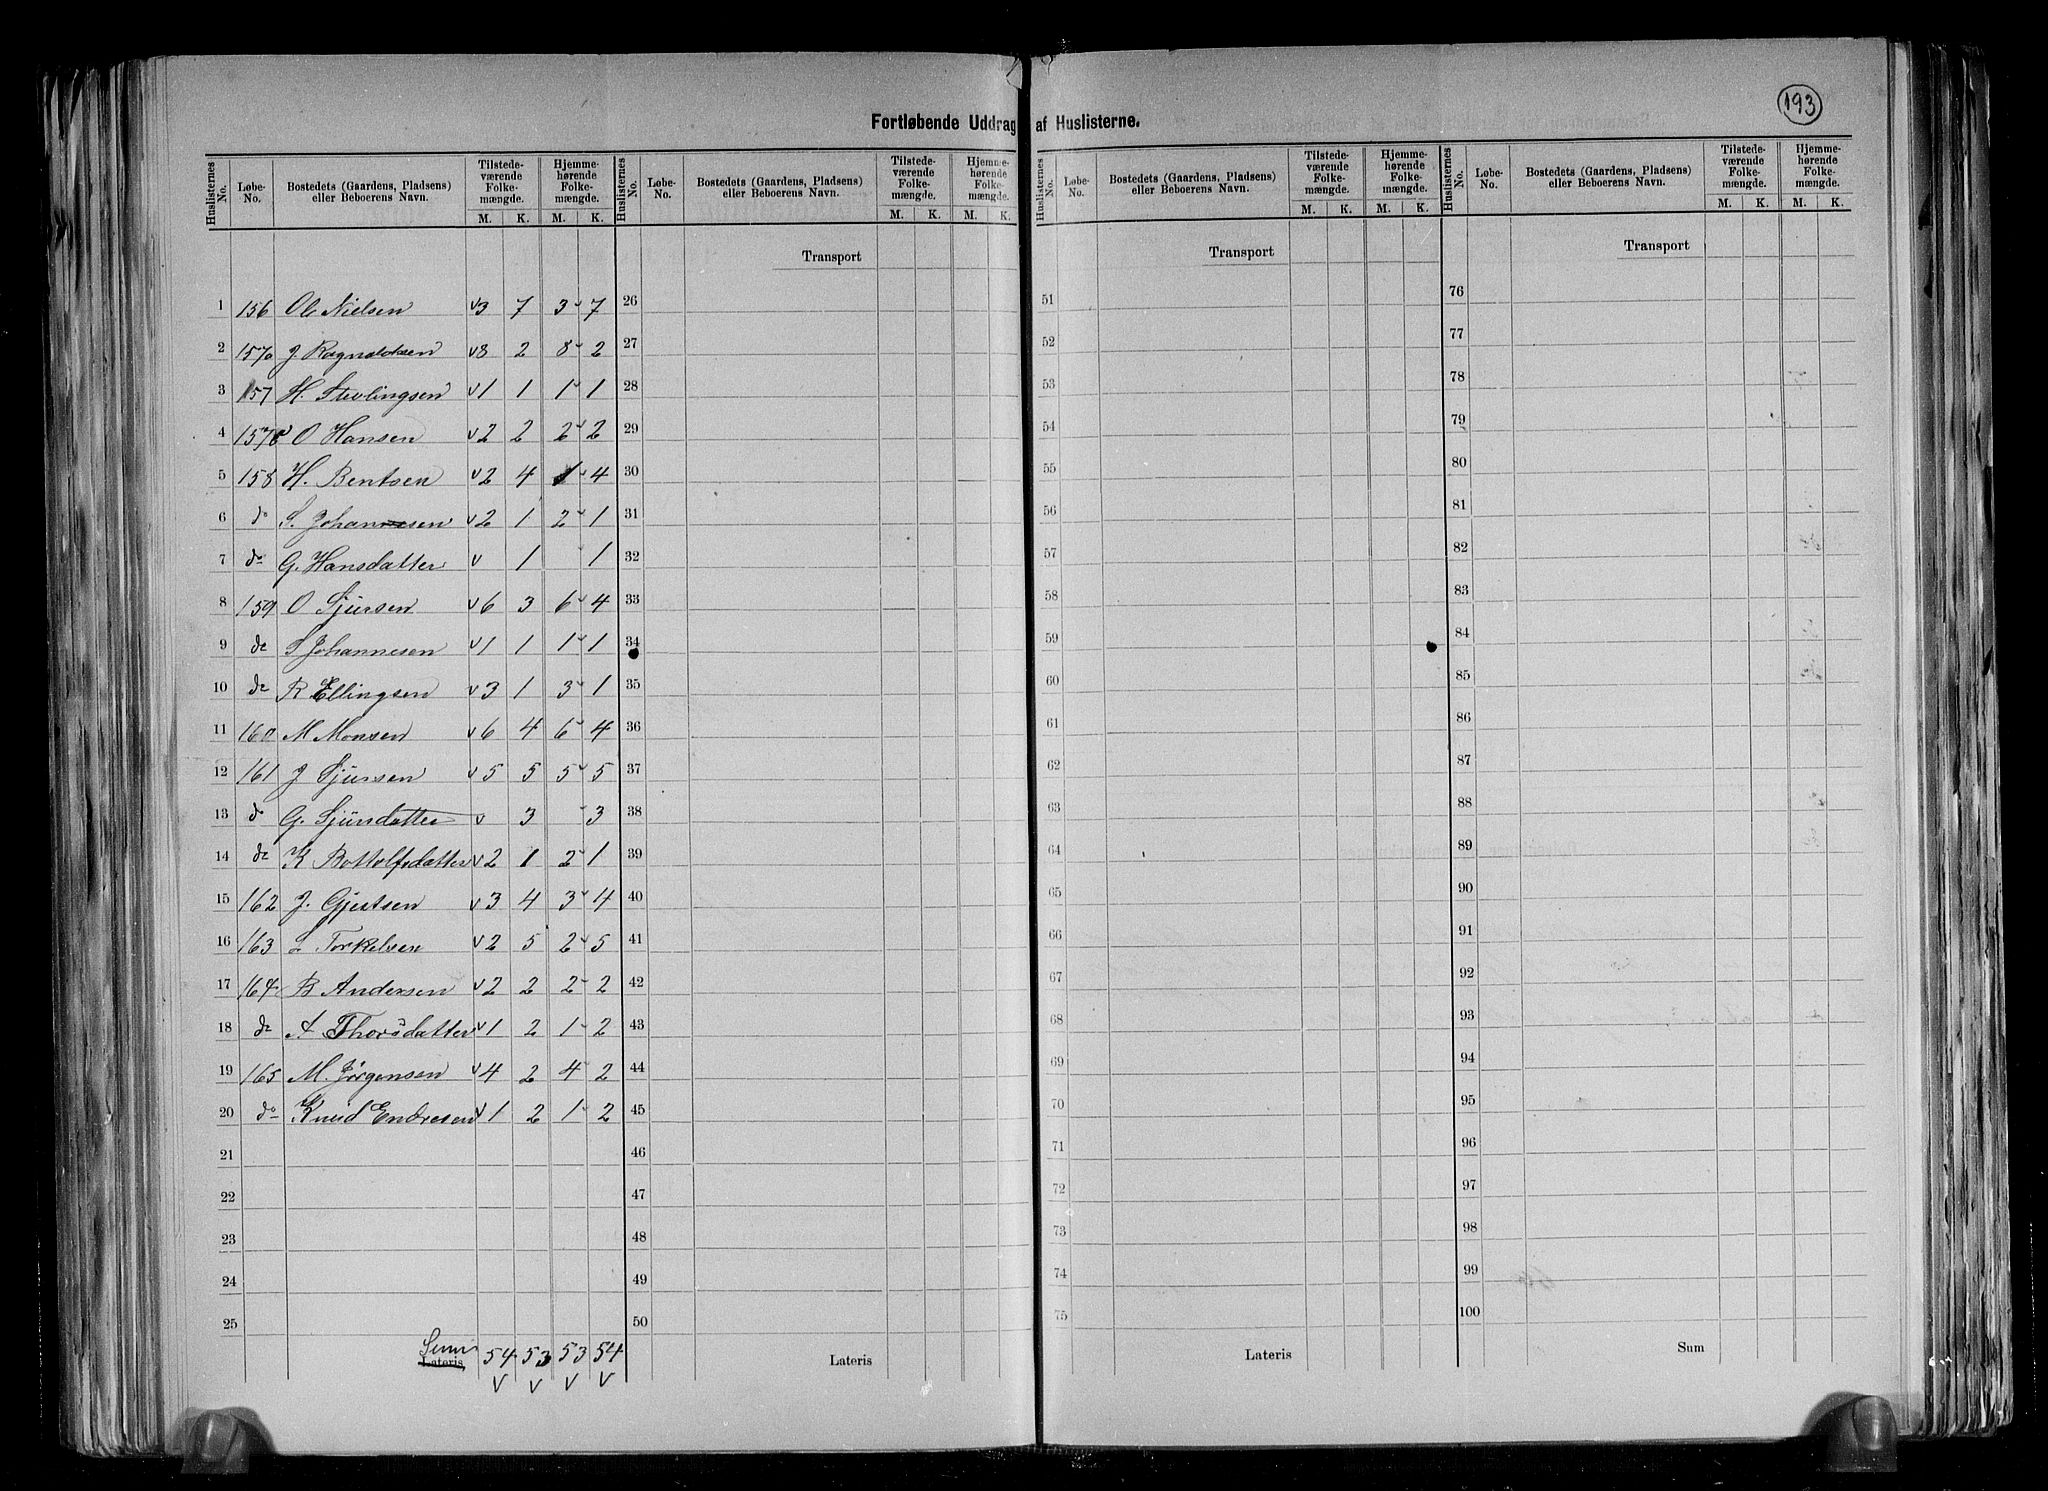 193
Fortløbende Uddrag af Huslisterne.
Huslisternes No. Løbe-No. Bostedets (Gaardens, Pladsens) eller Beboerens Navn. Tilstedeværende Folkemængde. M. K. Hjemmehørende Folkemængde. M. K.
Huslisternes No. Løbe-No. Bostedets (Gaardens, Pladsens) eller Beboerens Navn. Tilstedeværende Folkemængde. M. K. Hjemmehørende Folkemængde. M. K.
Huslisternes No. Løbe-No. Bostedets (Gaardens, Pladsens) eller Beboerens Navn. Tilstedeværende Folkemængde. M. K. Hjemmehørende Folkemængde. M. K.
Huslisternes No. Løbe-No. Bostedets (Gaardens, Pladsens) eller Beboerens Navn. Tilstedeværende Folkemængde. M. K. Hjemmehørende Folkemængde. M. K.
Transport Transport Transport
1 156 Ole Nielsen v 3 7 3 7 26 51 76
2 157a J. Ragnaldsen v 8 2 8 2 27 52 77
3 157 H. v 1 1 1 1 28 53 78
4 157c O Hansen v 2 2 2 2 29 54 79
5 158 H. Bentsen v 2 4 1 4 30 55 80
6 do S. Johannesen v 2 1 2 1 31 56 81
7 do G. Hansdatter v 1 1 32 57 82
8 159 O Sjursen v 6 3 6 4 33 58 83
9 do S Johannesen v 1 1 1 1 34 59 84
10 do R Ellingsen v 3 1 3 1 35 60 85
11 160 M Monsen v 6 4 6 4 36 61 86
12 161 J Sjursen v 5 5 5 5 37 62 87
13 do G. Sjursdatter v 3 3 38 63 88
14 do K Bottolfsdatter v 2 1 2 1 39 64 89
15 162 J. Gjertsen v 3 4 3 4 40 65 90
16 163 L Torkelsen v 2 5 2 5 41 66 91
17 164 B Andersen v 2 2 2 2 42 67 92
18 do A Thorsdatter v 1 2 1 2 43 68 93
19 165 M. Jørgensen v 4 2 4 2 44 69 94
20 do Knud Endresen v 1 2 1 2 45 70 95
21 46 71 96
22 47 72 97
23 48 73 98
24 49 74 99
25 50 75 100
Sum
Lateris 54 53 53 54 Lateris Lateris Sum
v v v v